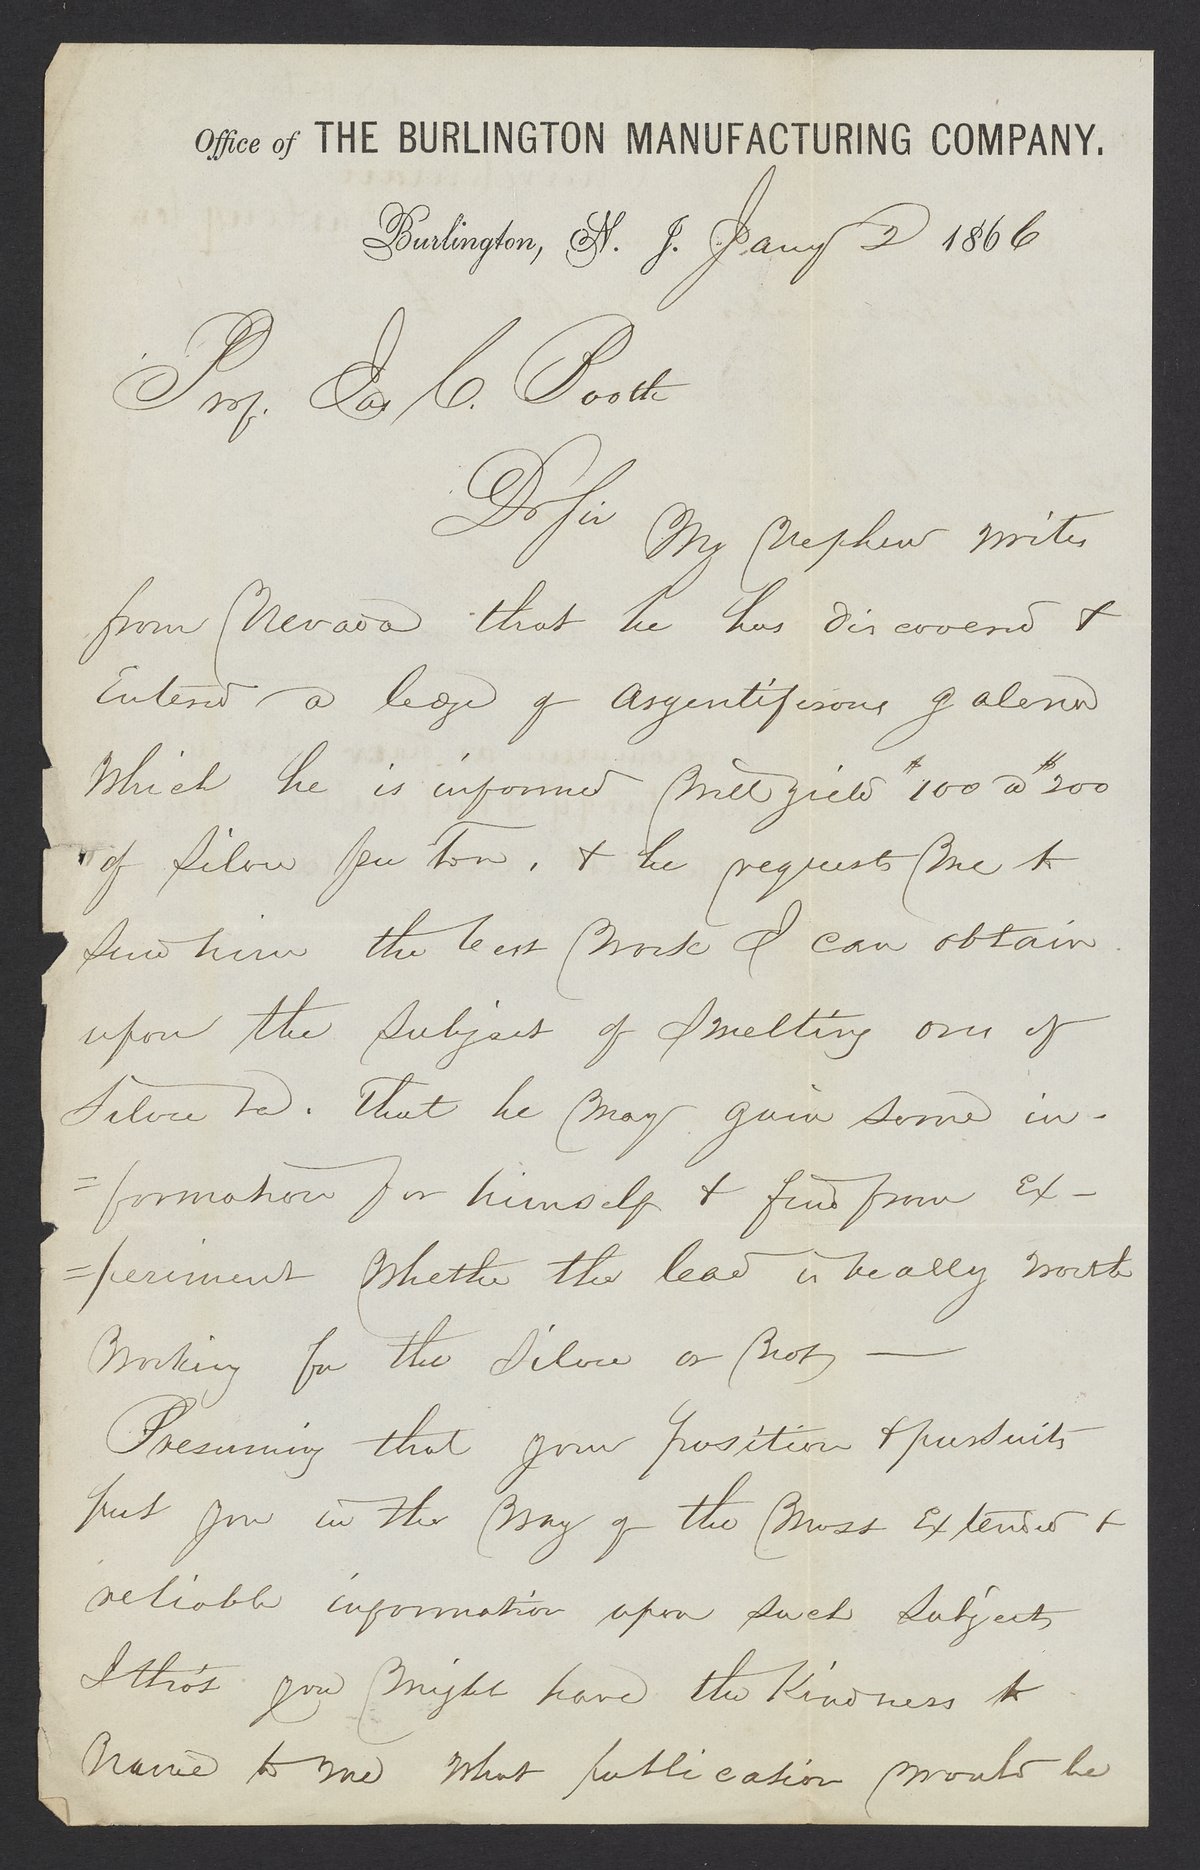 Office of THE BURLINGTON MANUFACTURING COMPANY.
Burlington, N. J. Jany 2 1866
Prof. Jas C. Booth
Dr Sir My Nephew writes
from Nevada that he has discovered &
Entered a ledge of Argentiferous galena
Which he is informed Will yield $100 a $200
of Silver per Ton, & he requests Me to
send him the best Work I can obtain
upon the subject of Smelting ores of
Silver &c. That he May gain some in-
=formation for himself & find from Ex-
=periment Whether the lead is really worth
Working for the Silver or Not —
Presuming that your position & pursuits
put you in the Way of the Most Extended &
reliable information upon such subjects
I tho't you Might have the Kindness to
Name to me What publication would be